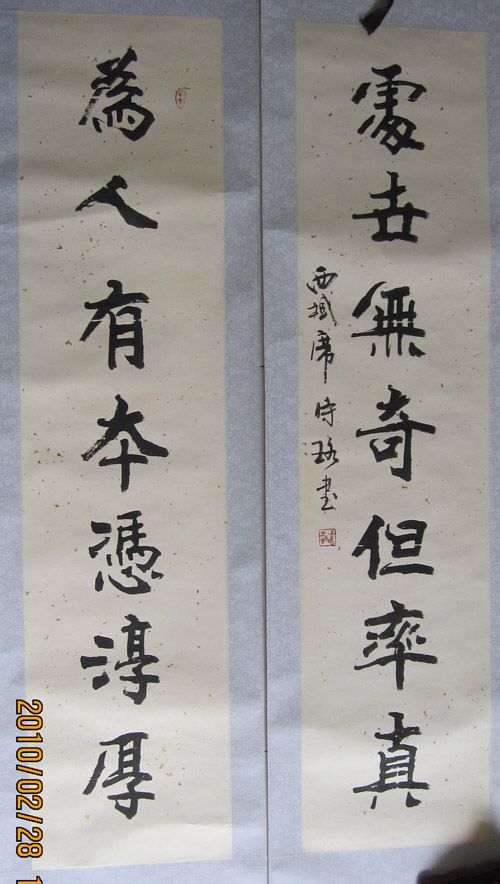 處世無奇但率真
西域席時珞書
為人有本憑淳厚
2010/02/28 1